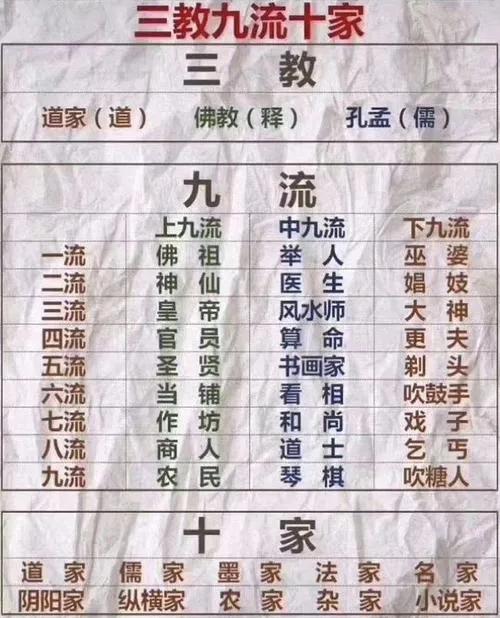 三教九流十家
三 教
道家（道） 佛教（释） 孔孟（儒）
九 流
上九流 中九流 下九流
一流 佛 祖 举 人 巫 婆
二流 神 仙 医 生 娼 妓
三流 皇 帝 风水师 大 神
四流 官 员 算 命 更 夫
五流 圣 贤 书画家 剃 头
六流 当 铺 看 相 吹鼓手
七流 作 坊 和 尚 戏 子
八流 商 人 道 士 乞 丐
九流 农 民 琴 棋 吹糖人
十 家
道 家 儒 家 墨 家 法 家 名 家
阴阳家 纵横家 农 家 杂 家 小说家